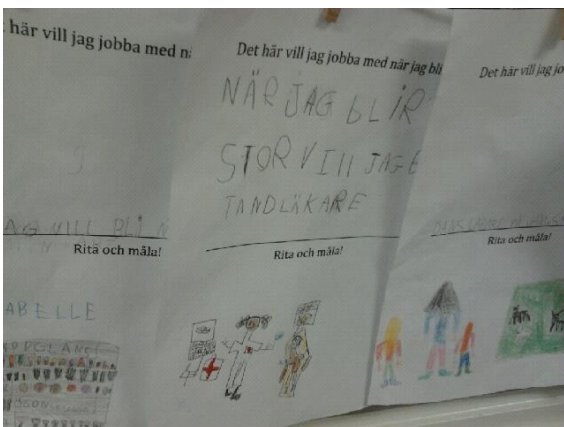 här vill jag jobba med
AG VILL BLI N
Rita och måla!
ABELLE
Det här vill jag jobba med när jag bli
NÄR JAG BLIR
STOR VIll JAG B
TANDLÄKARE
Rita och måla!
Det här vill jag jo
Rita och måla!